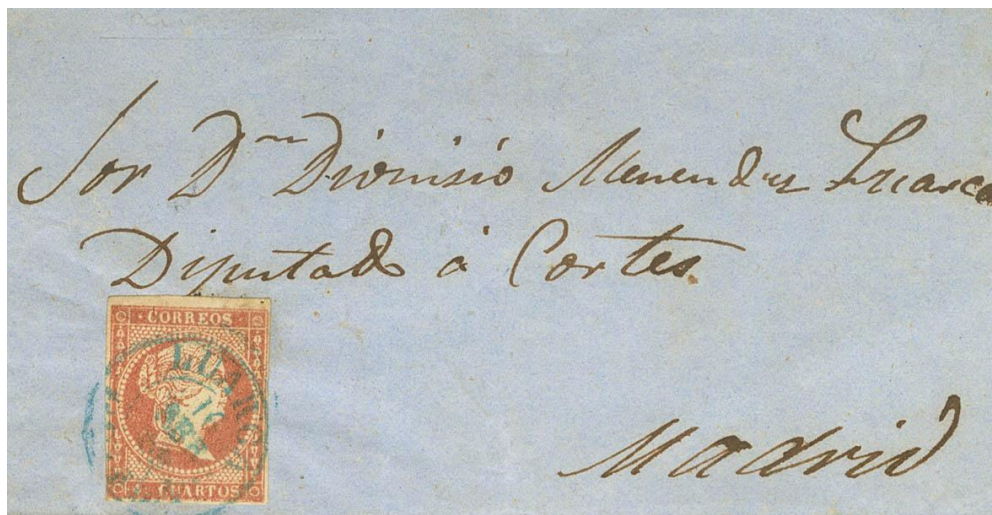 Sor Dn Dionisio Menendez Luarca
Diputado á Cortes
CORREOS
LUARC
CUARTOS
Madrid